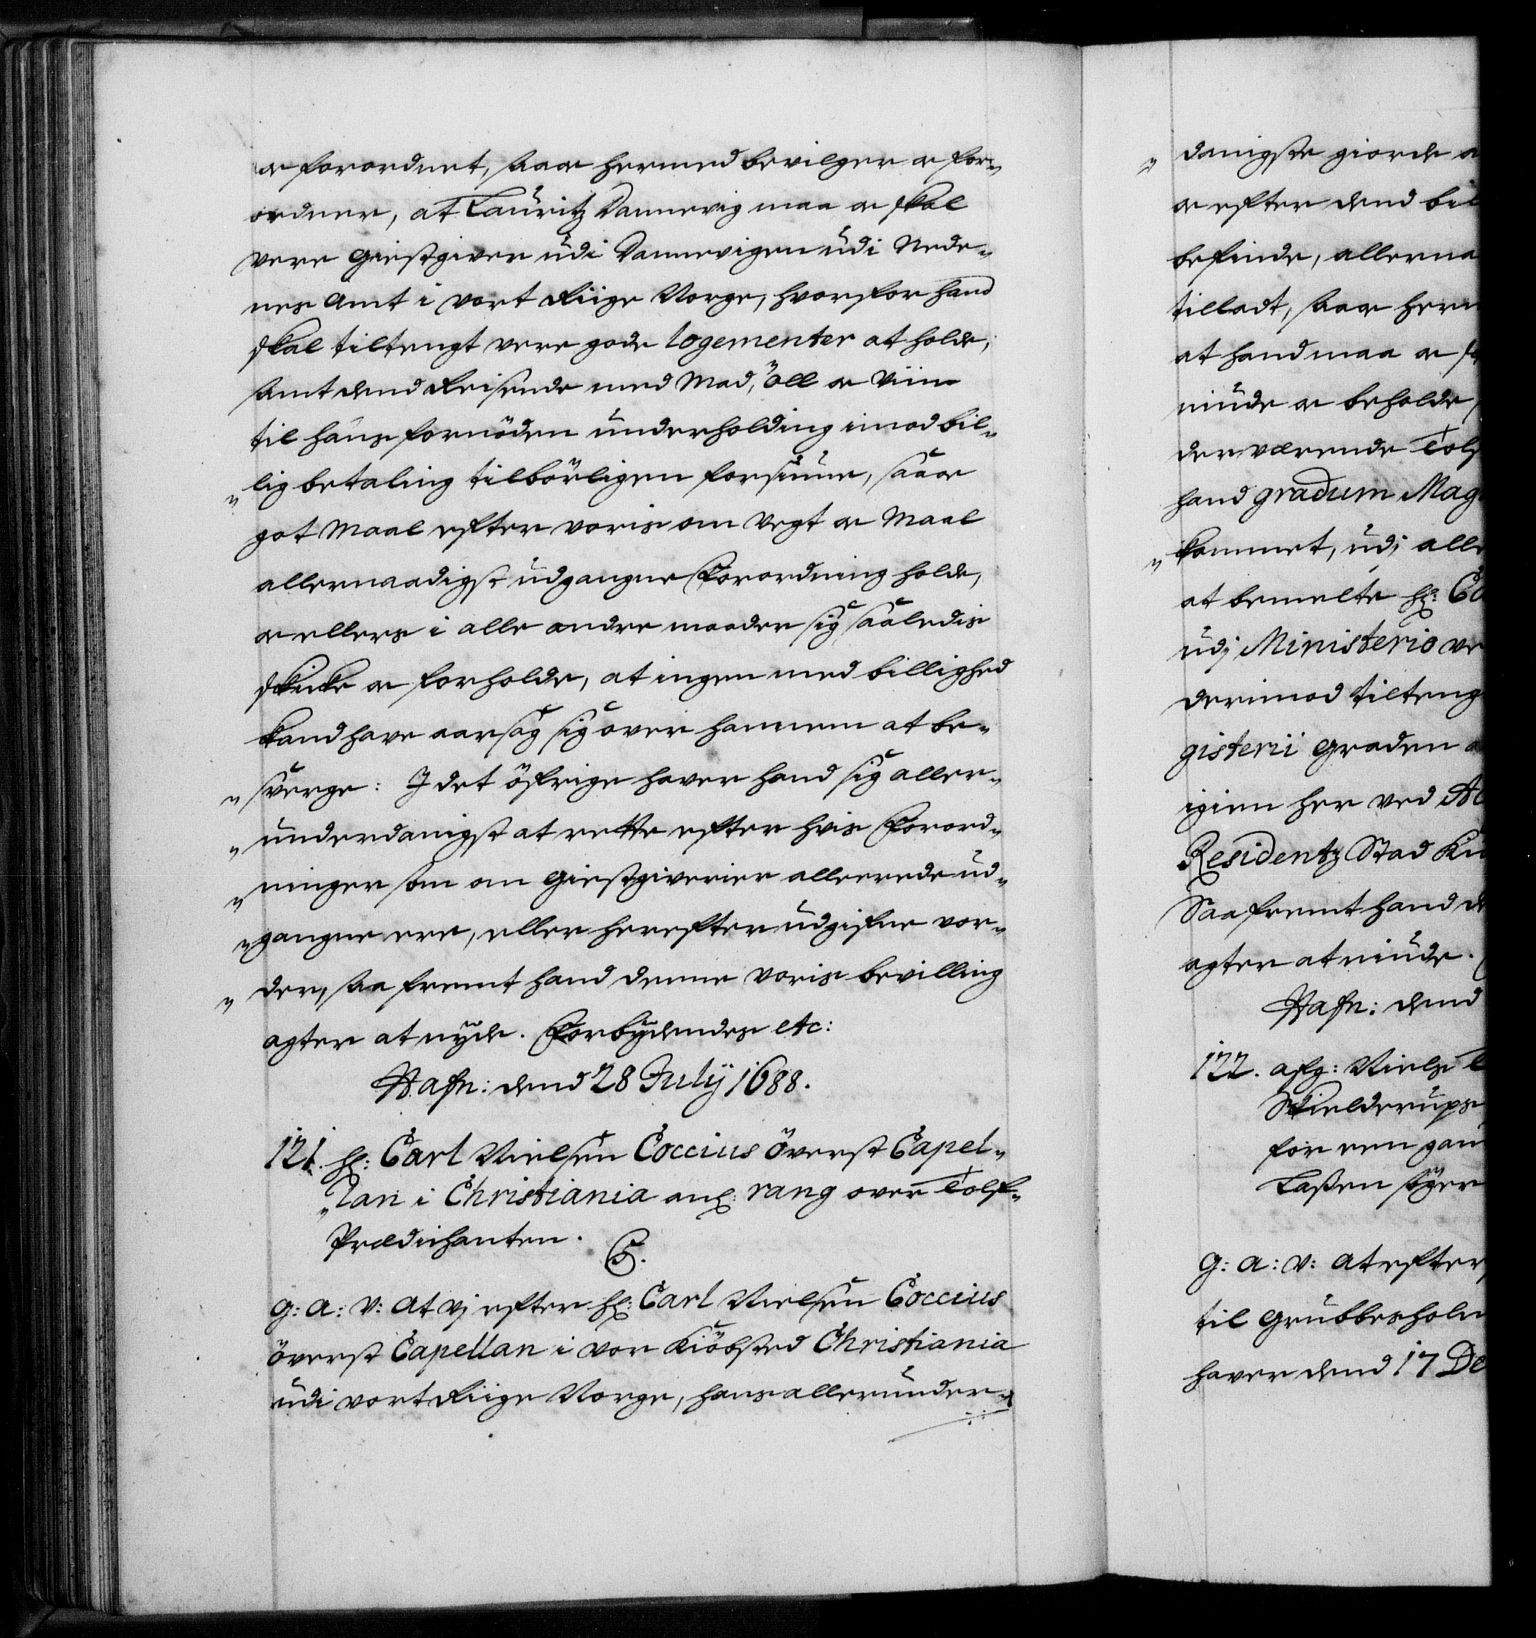 oc forordnet, saa oc hermed bevilger oc for-
ordner, at Lauritz Dannevig maa oc skal
vere Giestgiver udi Dannevigen udi Nede-
nes Amt i vort Riige Norge, hvorfor hand
skal tiltengt vere gode logementer at holde,
samt dend Reisende med Mad, Öll oc Viin
til hans fornöden underholding imod bil-
lig betaling tilbörligen forsiune, saa oc
got Maal efter voris om Vegt oc Maal
allernaadigst udgangne Forordning holde,
oc ellers i alle andre maader sig saaledis
skicke oc forholde, at ingen med billighed
kand have aarsag sig over hannem at be-
sverge: I det öfrige haver hand sig aller-
underdanigst at rette efter hvis Forord-
ninger som om Giestgiverier allerede ud-
gangne ere, eller herefter udgifne vor-
der, saa fremt hand denne voris bevilling
agter at nyde. Forbydendes etc:
Hafn: dend 28 Julij 1688.
121. Hr: Carl Nielsen Coccius Överst Capel-
lan i Christiania anl: rang over Tolf-
Prædichanten.
G.
G: A: V: At vj efter Hr: Carl Nielsen Coccius
överst Capellan i vor Kiöbsted Christiania
udi vort Riige Norge, hans allerunder-
danigste giorde
oc efter dend
befinde, allerna
tilladt, saa oc herm
at hand maa oc
niude oc beholde
der værende Tolf
hand gradum Mag
kommet, udj alle
at bemelte Hr: Co
udj Ministerio ve
derimod tilteng
gisterii Graden
igien her ved
Residentz Stad
Saa fremt hand
agter at niude.
Hafn: dend
122. afg: Niels
Skielderups
for een gan
Lassen
G: A: V: At efter
til Grubbesholm
haver dend 17 De